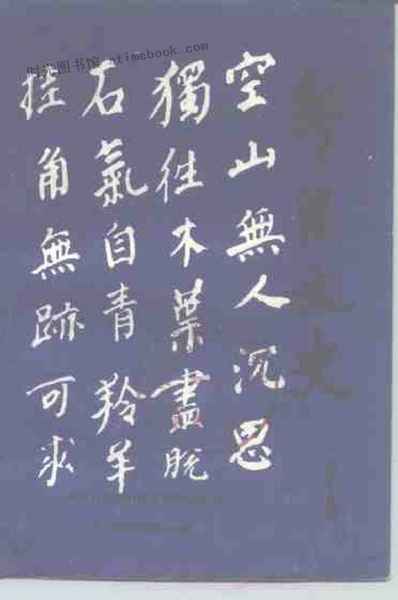 时光图书馆 atimebook.com
空山無人沉思
獨往木葉盡脫
石氣自青羚羊
挂角無跡可求